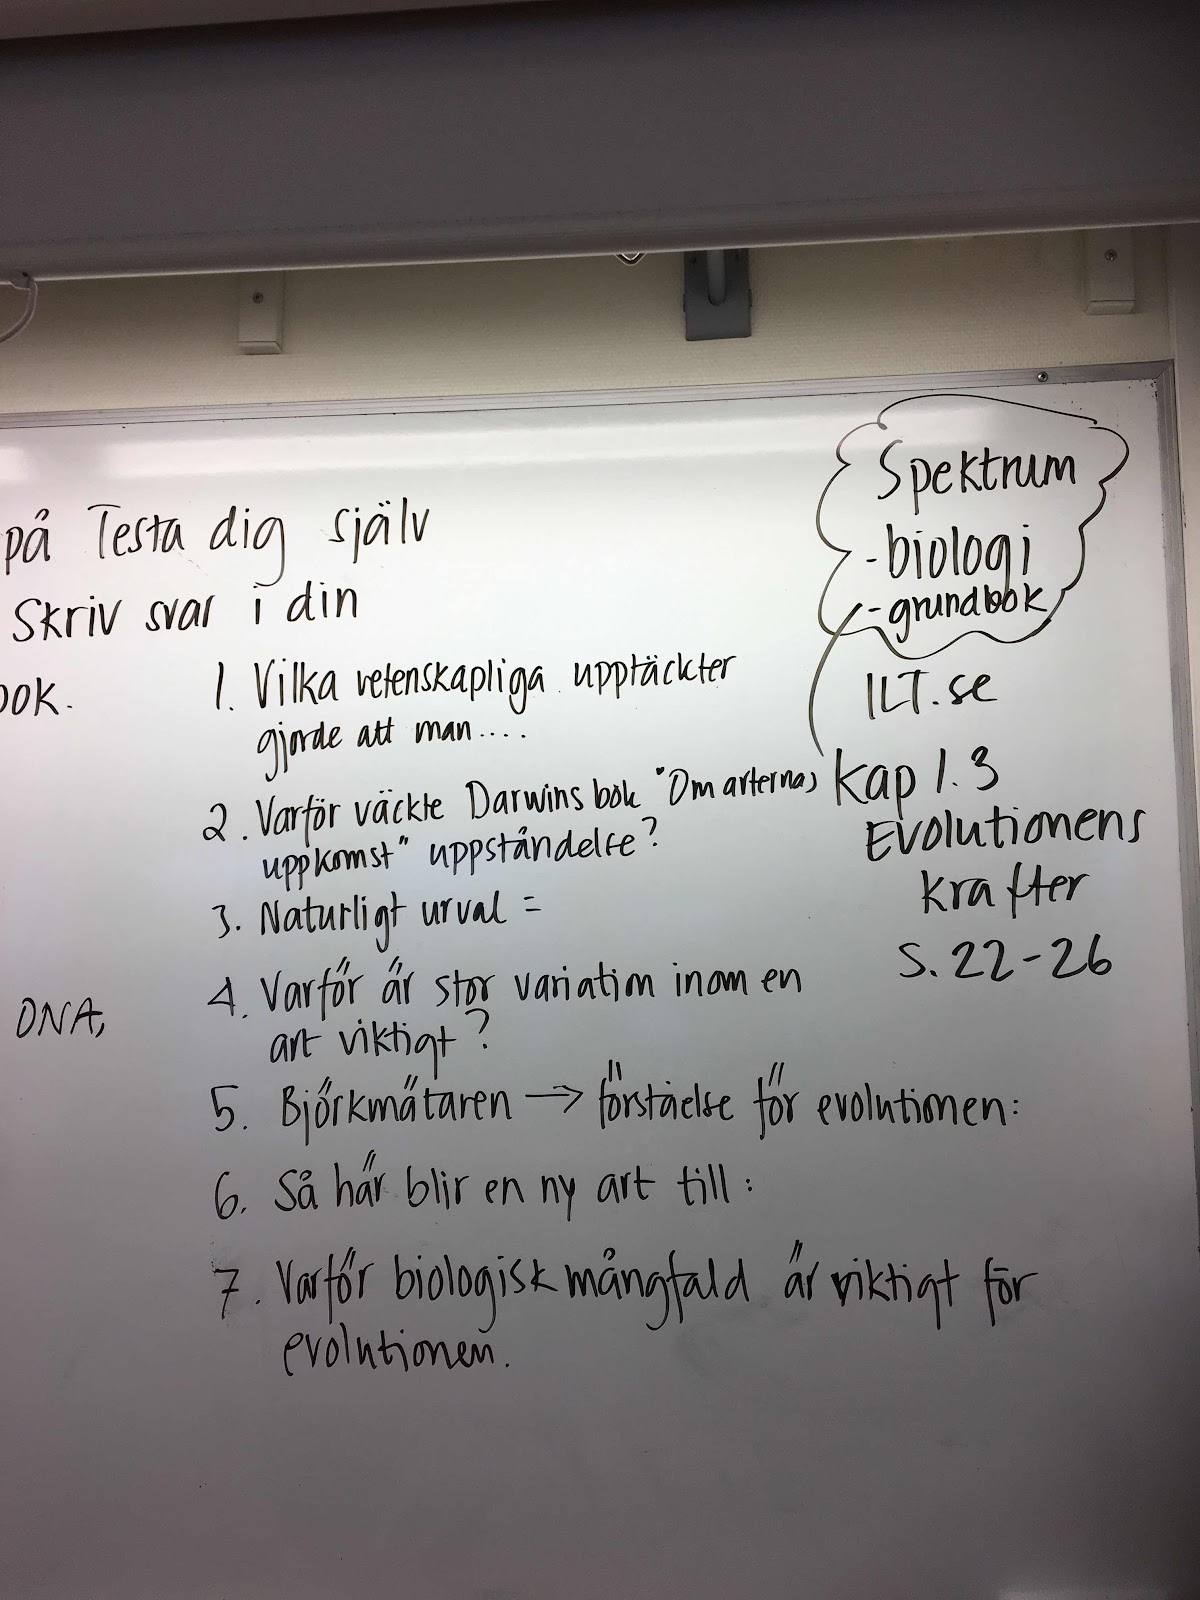 på Testa dig själv
Skriv svar i din
ok.
1. Vilka vetenskapliga upptäckter
gjorde att man....
2. Varför väckte Darwins bok "Om arternas
uppkomst" uppståndelse?
3. Naturligt urval =
DNA,
4. Varför är stor variation inom en
art viktigt?
5. Björkmätaren → förståelse för evolutionen:
6. Så här blir en ny art till:
7. Varför biologisk mångfald är viktigt för
evolutionen.
Spektrum
-biologi
-grundbok
ILT.se
Kap 1.3
Evolutionens
krafter
S. 22-26